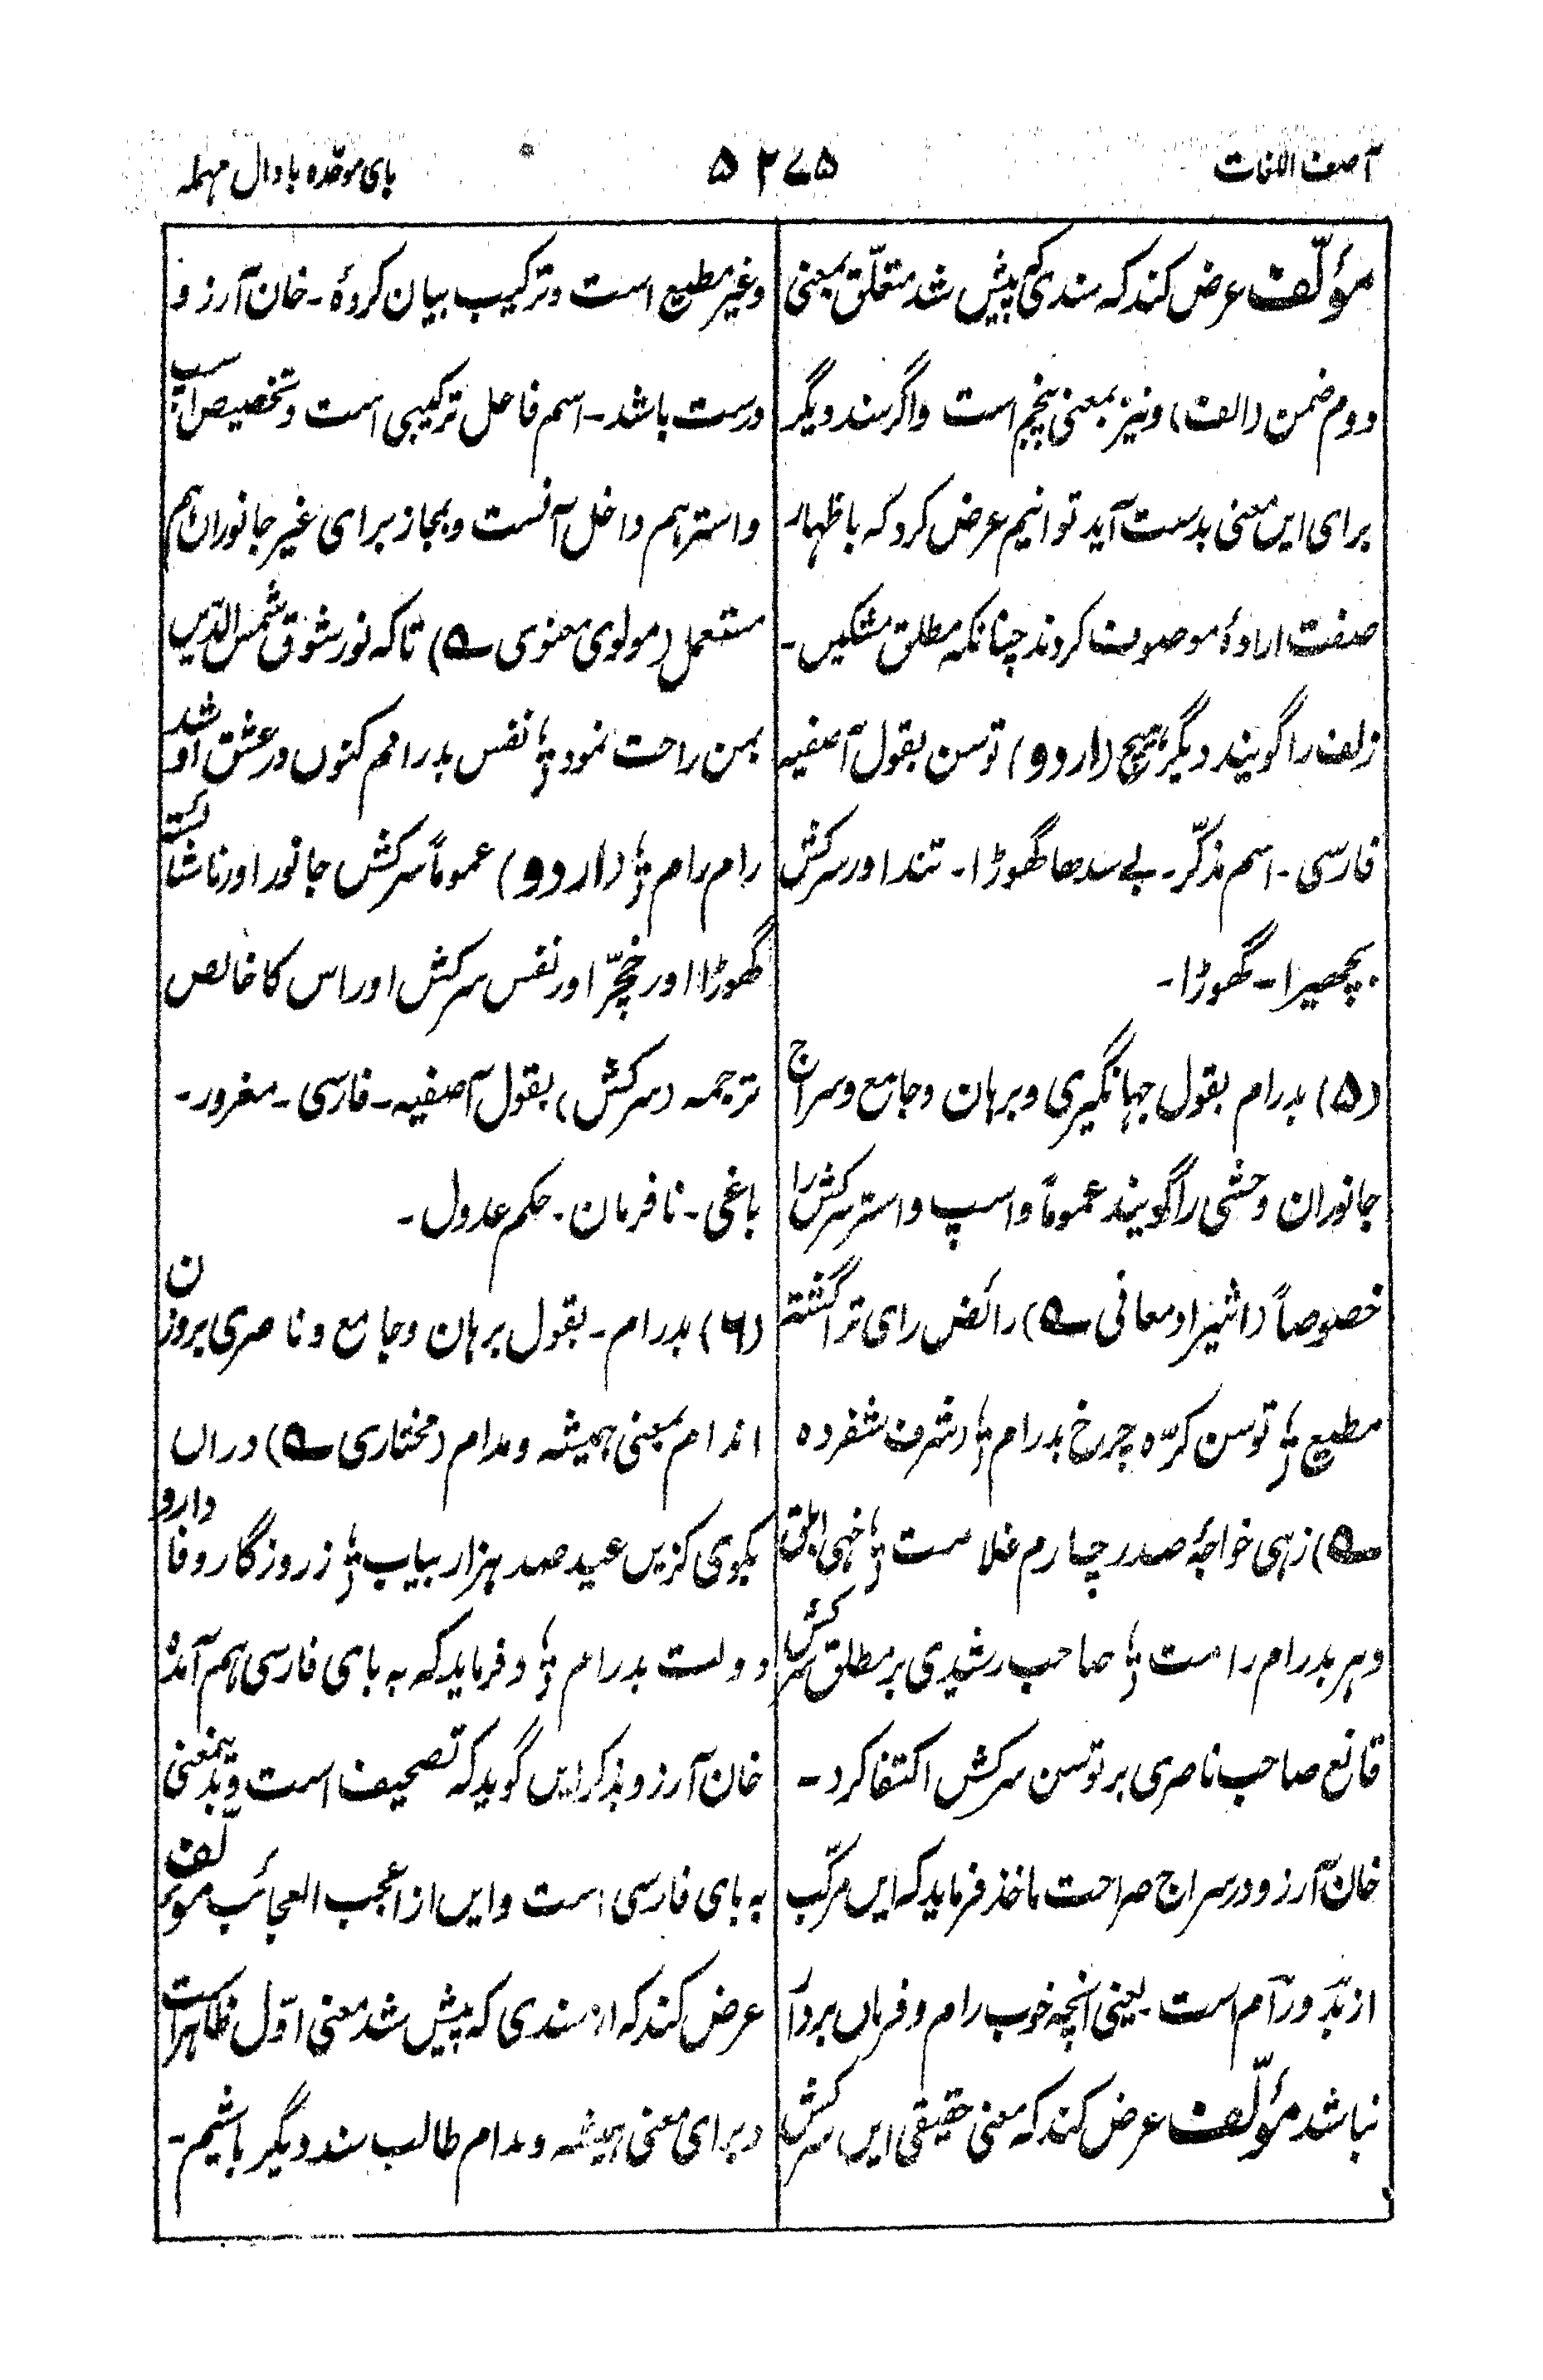 آصف اللغات
۵۲۷۵
بای موحّده با دال مہملہ
مؤلّف عرض کند کہ سندی کہ پیش شد متعلّق بمعنی
دوم ضمن (الف) و نیز بمعنی پنجم است و اگر سند دیگر
برای این معنی بدست آید توانیم عرض کرد کہ باظہار
صفت ارادهٔ موصوف کردند چنانکہ مطلق مشکیں۔
زلف را گویند دیگر ہیچ (اردو) توسن بقول آصفیہ
فارسی ۔ اسم مذکّر ۔ بے سدھا گھوڑا ۔ تند اور سرکش
بچھیرا ۔ گھوڑا ۔
(۵) بدرام بقول جہانگیری و برہان و جامع و سراج
جانوران وحشی را گویند عموماً و اسپ و استر سرکش را
خصوصاً (اثیر اومعانی ؎) رائض رای ترا گشتہ
مطیع ؛ توسن کرّه چرخ بدرام ؛ (شرف شفرده
؎) زہی خواجۂ صدر چارم غلامت ؛ خہی ابلق
و ہر بدرام رامت ؛ صاحب رشیدی بر مطلق سرکش
قانع صاحب ناصری بر توسن سرکش اکتفا کرد ۔
خان آرزو در سراج صراحت ماخذ فرماید کہ ایں مرکّب
از بد و رام است یعنی آنچہ خوب رام و فرماں بردار
نباشد مؤلّف عرض کند کہ معنی حقیقی ایں سرکش
و غیر مطیع است و ترکیب بیان کردهٔ ۔ خان آرزو
درست باشد ۔ اسم فاعل ترکیبی است و تخصیص اسپ
و استر ہم داخل آنست و بمجاز برای غیر جانوران ہم
مستعمل (مولوی معنوی ؎) تا کہ نور شوق شمس الدّیں
بمن راحت نمود ؛ نفس بدرامم کنوں در عشق او شد
رام رام ؛ (اردو) عموماً سرکش جانور اور ناشائستہ
گھوڑا اور خچّر اور نفس سرکش اور اس کا خالص
ترجمہ (سرکش) بقول آصفیہ ۔ فارسی ۔ مغرور ۔
باغی ۔ نافرمان ۔ حکم عدول ۔
(۶) بدرام ۔ بقول برہان و جامع و ناصری بروزن
اندام بمعنی ہمیشہ و مدام (مختاری ؎) دراں
بکوی کزیں عید صد ہزار بیاب ؛ ز روزگار وفا دارو
دولت بدرام ؛ و فرماید کہ بہ بای فارسی ہم آمده
خان آرزو بذکر ایں گوید کہ تصحیف است و بدیں معنی
بہ بای فارسی است و ایں از اعجب العجائب مؤلّف
عرض کند کہ از سندی کہ پیش شد معنی اوّل ظاہر است
و برای معنی ہمیشہ و مدام طالب سند دیگر باشیم ۔